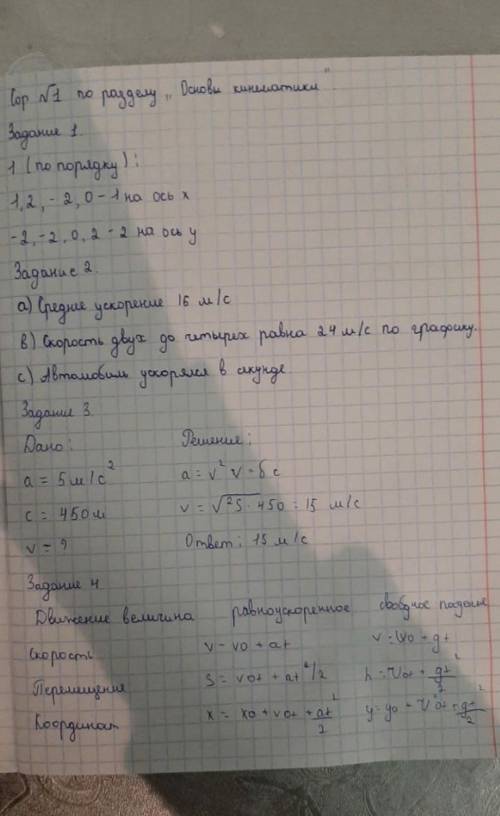 Сор №1 по разделу „Основы кинематики“
Задание 1.
1 (по порядку):
1, 2, - 2, 0 - 1 на ось x
-2, -2, 0, 2 - 2 на ось y
Задание 2.
а) Средние ускорение 16 м/с
в) Скорость двух до четырех равна 24 м/с по графику.
с) Автомобиль ускорялся в секунде
Задание 3.
Дано: Решение:
a = 5 м/с² a = v² v - с
c = 450 м v = √25 · 450 = 15 м/с
v = ? Ответ: 15 м/с
Задание 4
Движение величина равноускоренное свободное падение
Скорость v = v0 + at v = v0 + gt
Перемещение S = v0t + at²/2 h = v0t + gt²/2
Координат x = x0 + v0t + at²/2 y = y0 + v0t + gt²/2